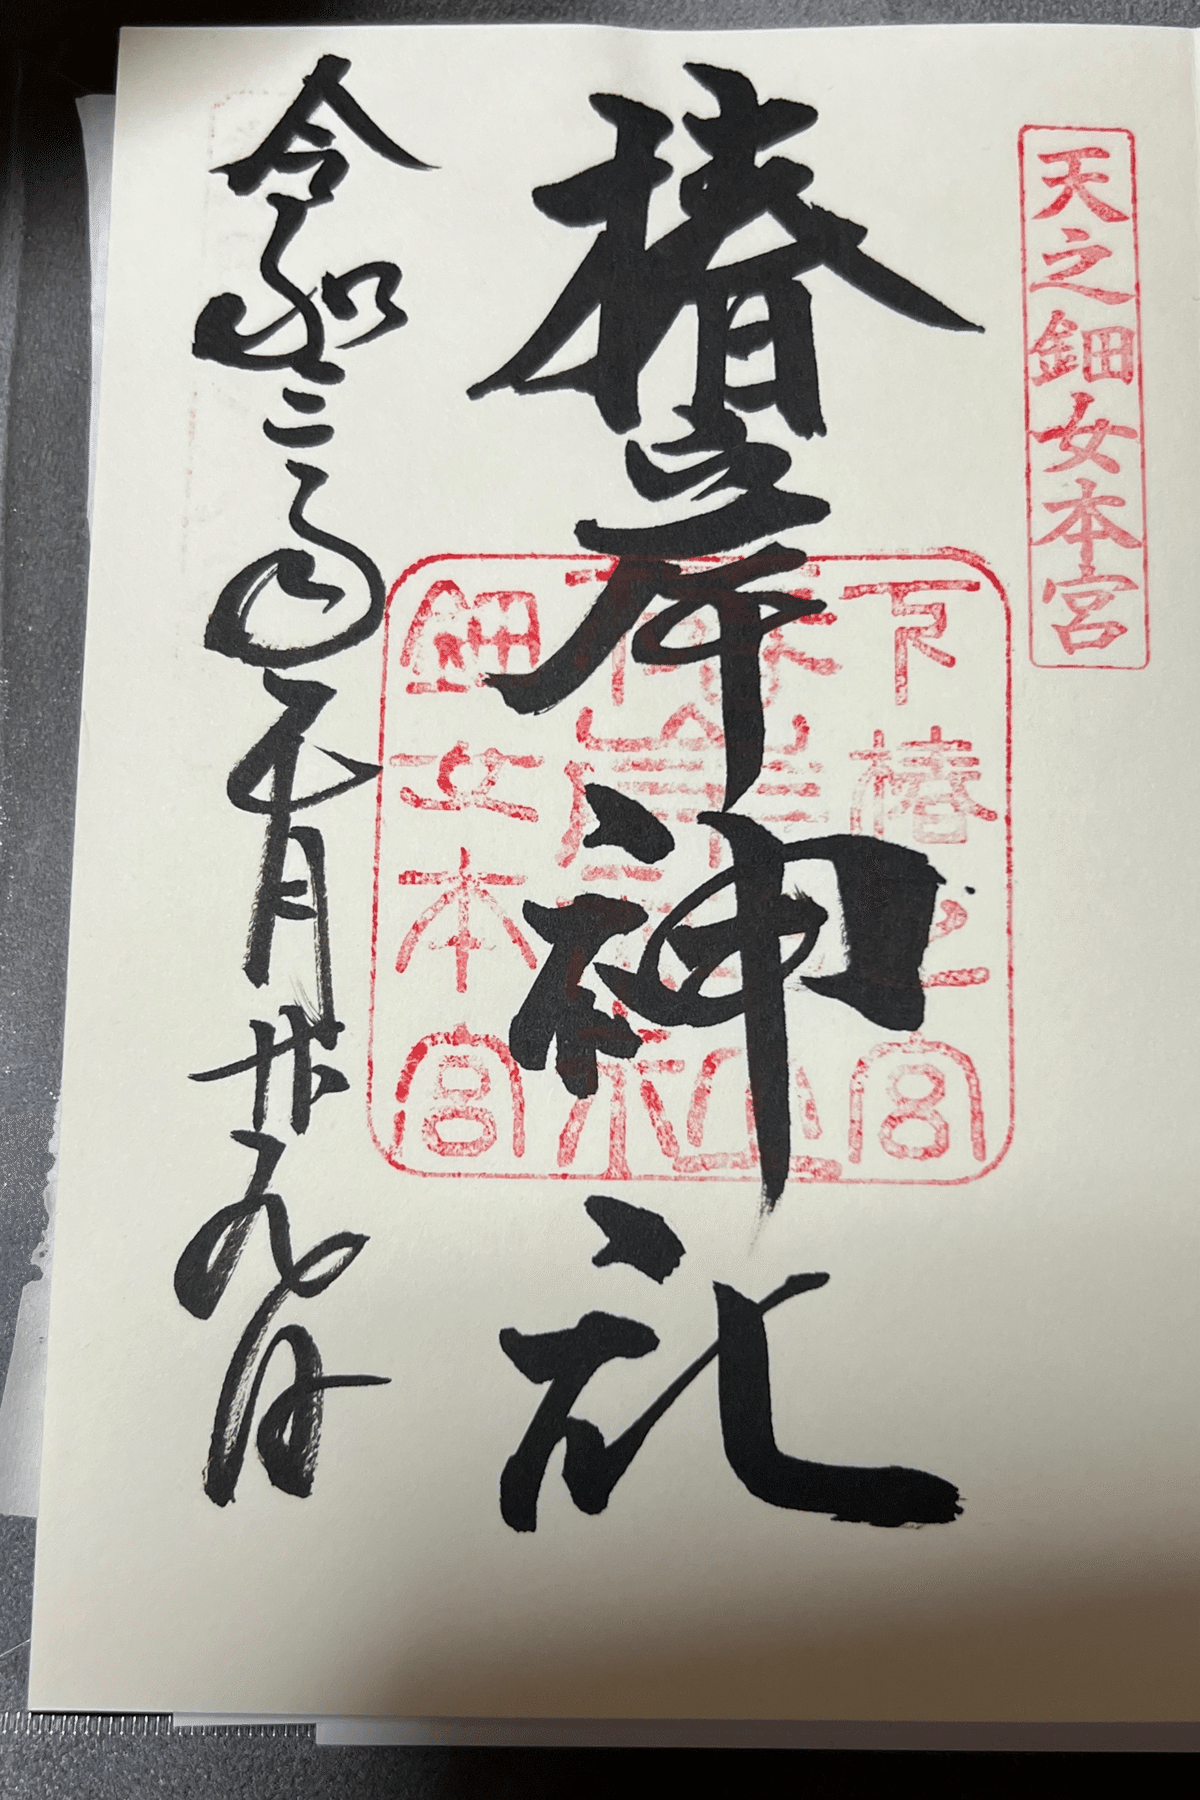 天之鈿女本宮
椿岸神社
下椿之宮
椿岸神社
鈿女本宮
令和二年五月廿九日